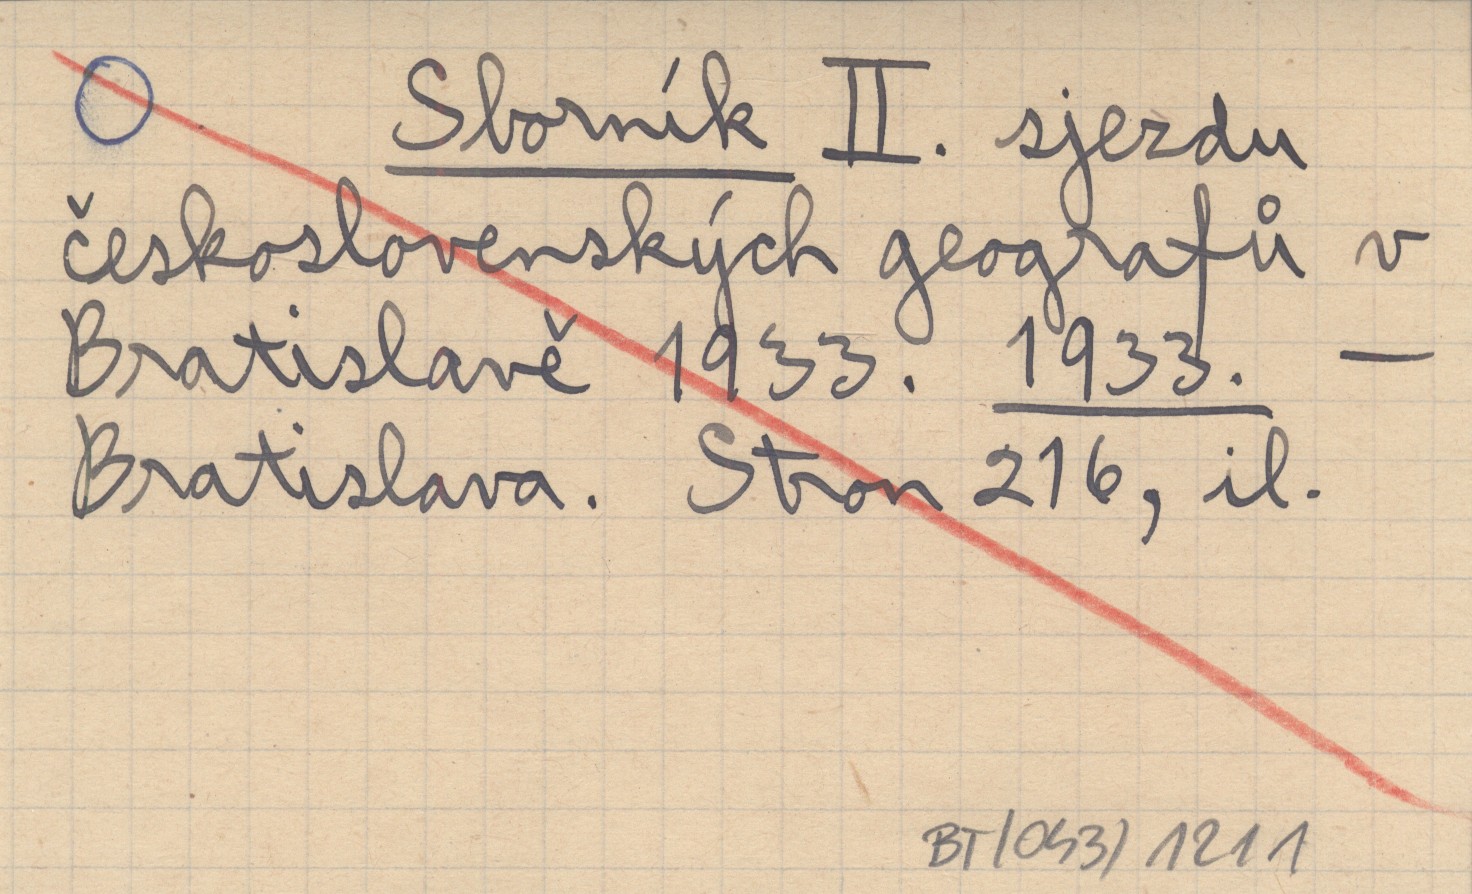 Sborník II. sjezdu
československých geografů v
Bratislavě 1933. 1933. —
Bratislava. Stron 216, il.
BT/043/ 1211